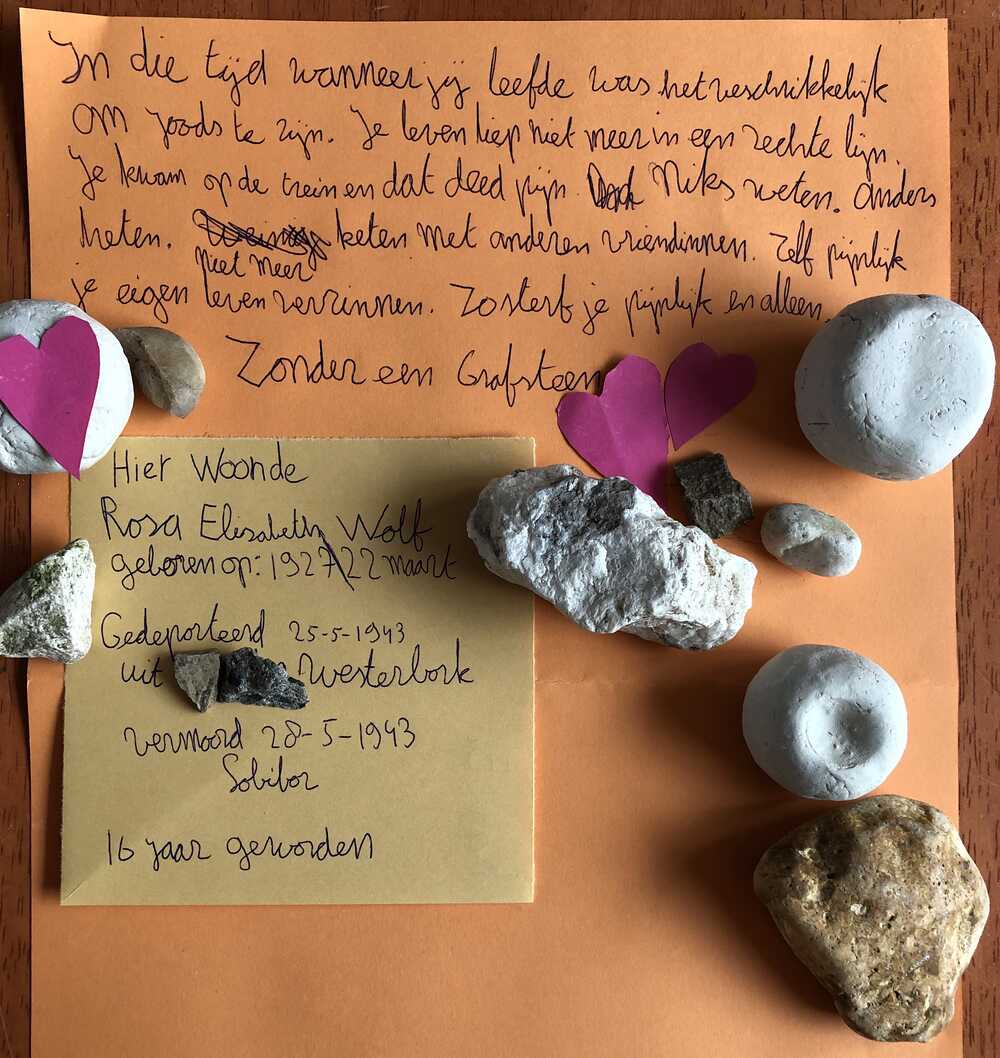 In die tijd wanneer jij leefde was het veschrikkelijk
om joods te zijn. Je leven liep niet meer in een rechte lijn.
Je kwam op de trein en dat deed pijn. Niks weten. Anders
heten. keten met anderen vriendinnen. Zelf pijnlijk
niet meer
je eigen leven verzinnen. Zo sterf je pijnlijk en alleen.
Zonder een Grafsteen
Hier Woonde
Rosa Elisabeth Wolf
geboren op: 1927 22 maart
Gedeporteerd 25-5-1943
uit Westerbork
vermoord 28-5-1943
Sobibor
16 jaar geworden